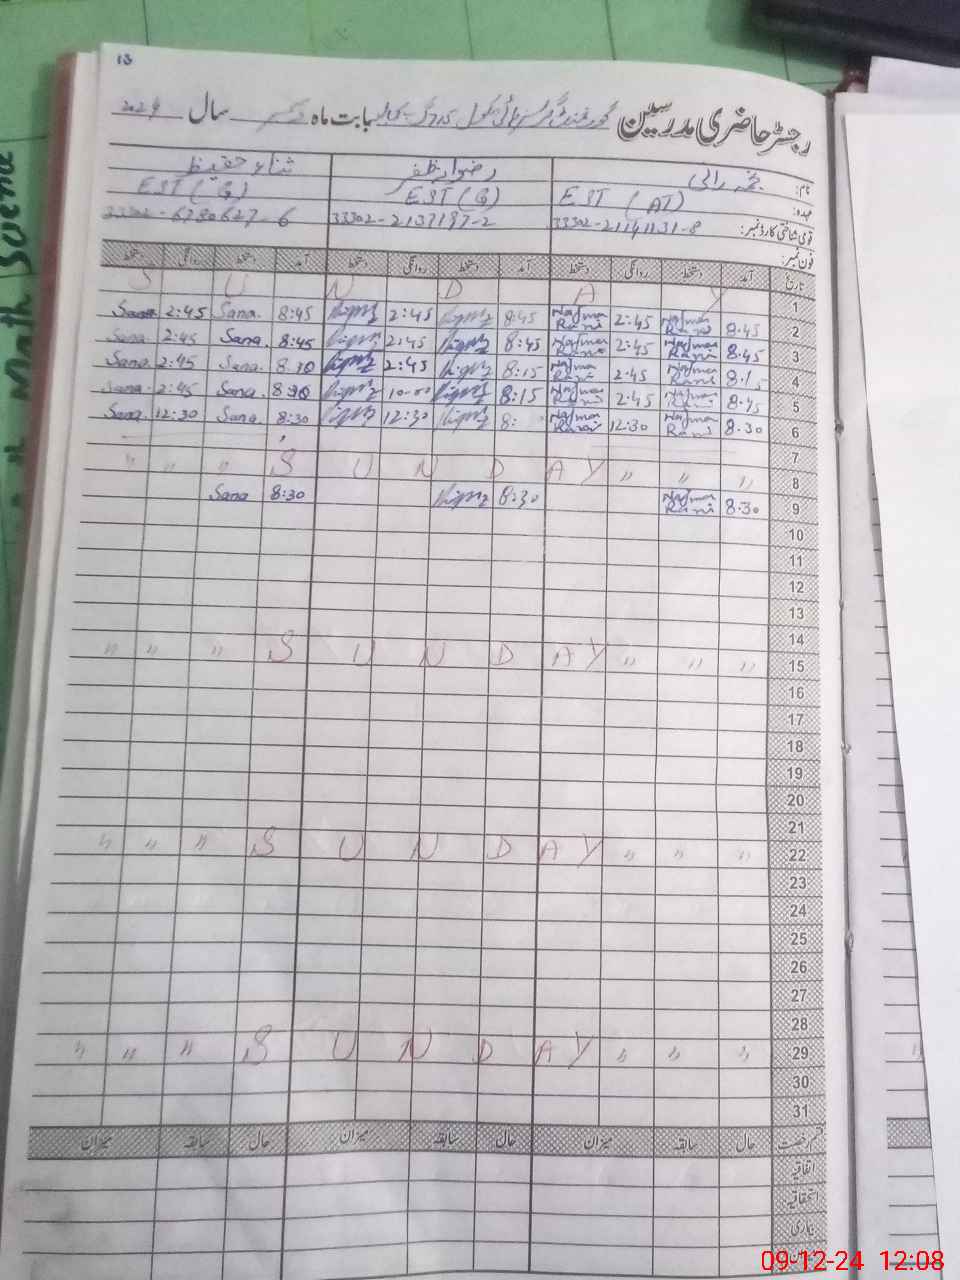 13
رجسٹر حاضری مدرسین گورنمنٹ گرلز ہائی سکول بابت ماہ دسمبر سال 2024
نام: نجمہ رانی رضوانہ ظفر ثناء حفیظ
عہدہ: EST (AT) EST (G) EST (G)
قومی شناختی کارڈ نمبر: 33302-2114131-8 33302-2137197-2 33302-6780627-6
فون نمبر:
تاریخ آمد دستخط روانگی دستخط آمد دستخط روانگی دستخط آمد دستخط روانگی دستخط
S U N D A Y 1
Sana 2:45 Sana. 8:45 2:45 8:45 Najma Rani 2:45 Najma Rani 8.45 2
Sana. 2:45 Sana. 8:45 2:45 8:45 Najma Rani 2:45 Najma Rani 8.45 3
Sana. 2:45 Sana. 8:30 2:45 8:15 Najma Rani 2.45 Najma Rani 8.15 4
Sana. 2:45 Sana. 8:30 10.00 8:15 Najma Rani 2.45 Najma Rani 8.45 5
Sana. 12:30 Sana. 8:30 12:30 8: Najma Rani 12:30 Najma Rani 8.30 6
7
" " " S U N D A Y " " " 8
Sana 8:30 8:30 Najma Rani 8.30 9
10
11
12
13
14
" " " S U N D A Y " " " 15
16
17
18
19
20
21
" " " S U N D A Y " " " 22
23
24
25
26
27
28
" " " S U N D A Y " " " 29
30
31
قسم رخصت حال سابقہ میزان حال سابقہ میزان حال سابقہ میزان
اتفاقیہ
استحقاقیہ
بیماری
09-12-24 12:08
Math